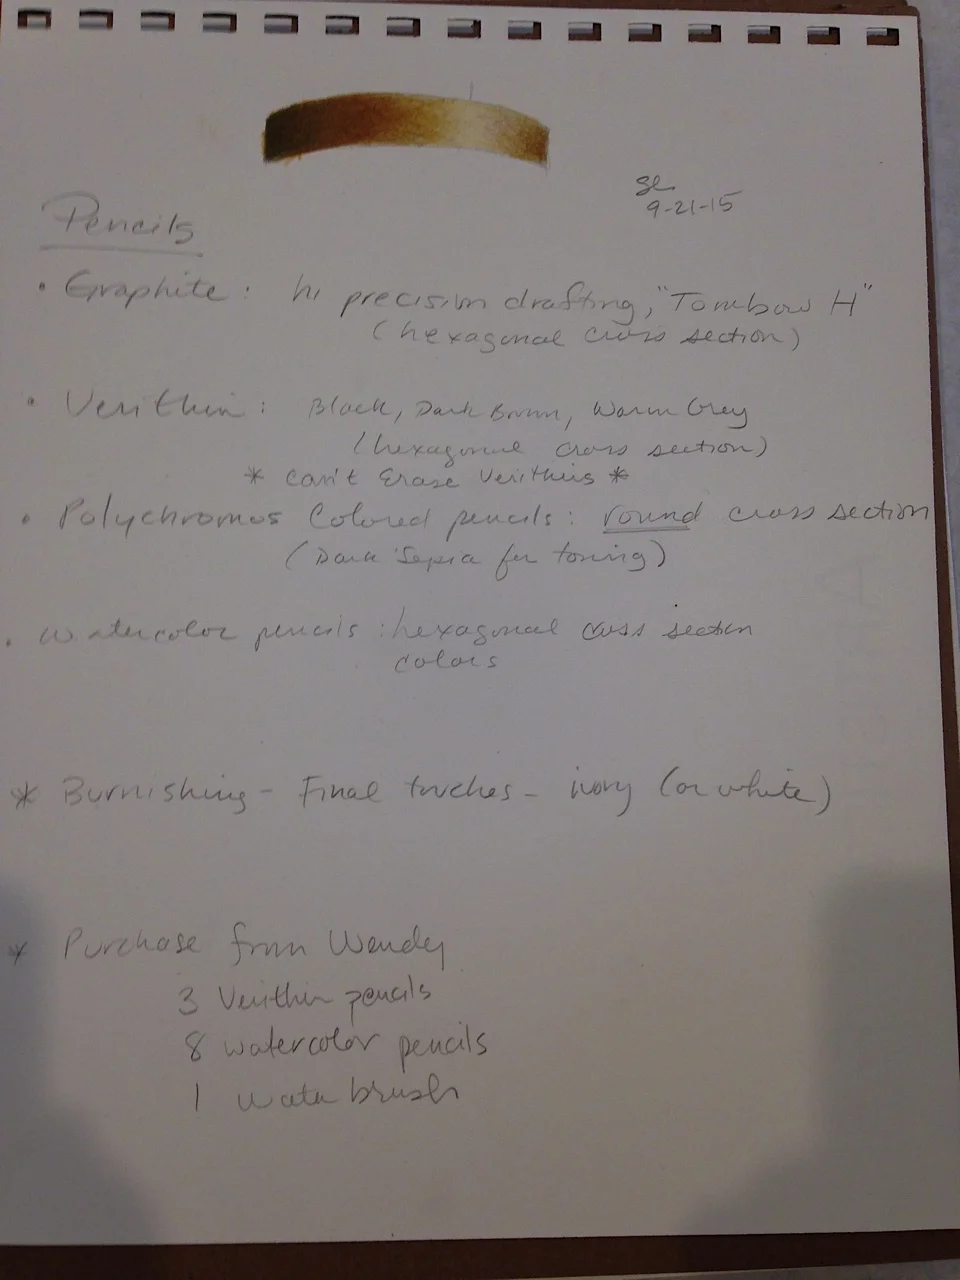 SL
9-21-15
Pencils
• Graphite: hi precision drafting, "Tombow H"
(hexagonal cross section)
• Verithin: Black, Dark Brown, Warm Grey
(hexagonal cross section)
* Can't Erase Verithins *
• Polychromos Colored pencils: round cross section
(Dark Sepia for toning)
• Watercolor pencils: hexagonal cross section
colors
* Burnishing - Final touches - ivory (or white)
* Purchase from Wendy
3 Verithin pencils
8 watercolor pencils
1 water brush